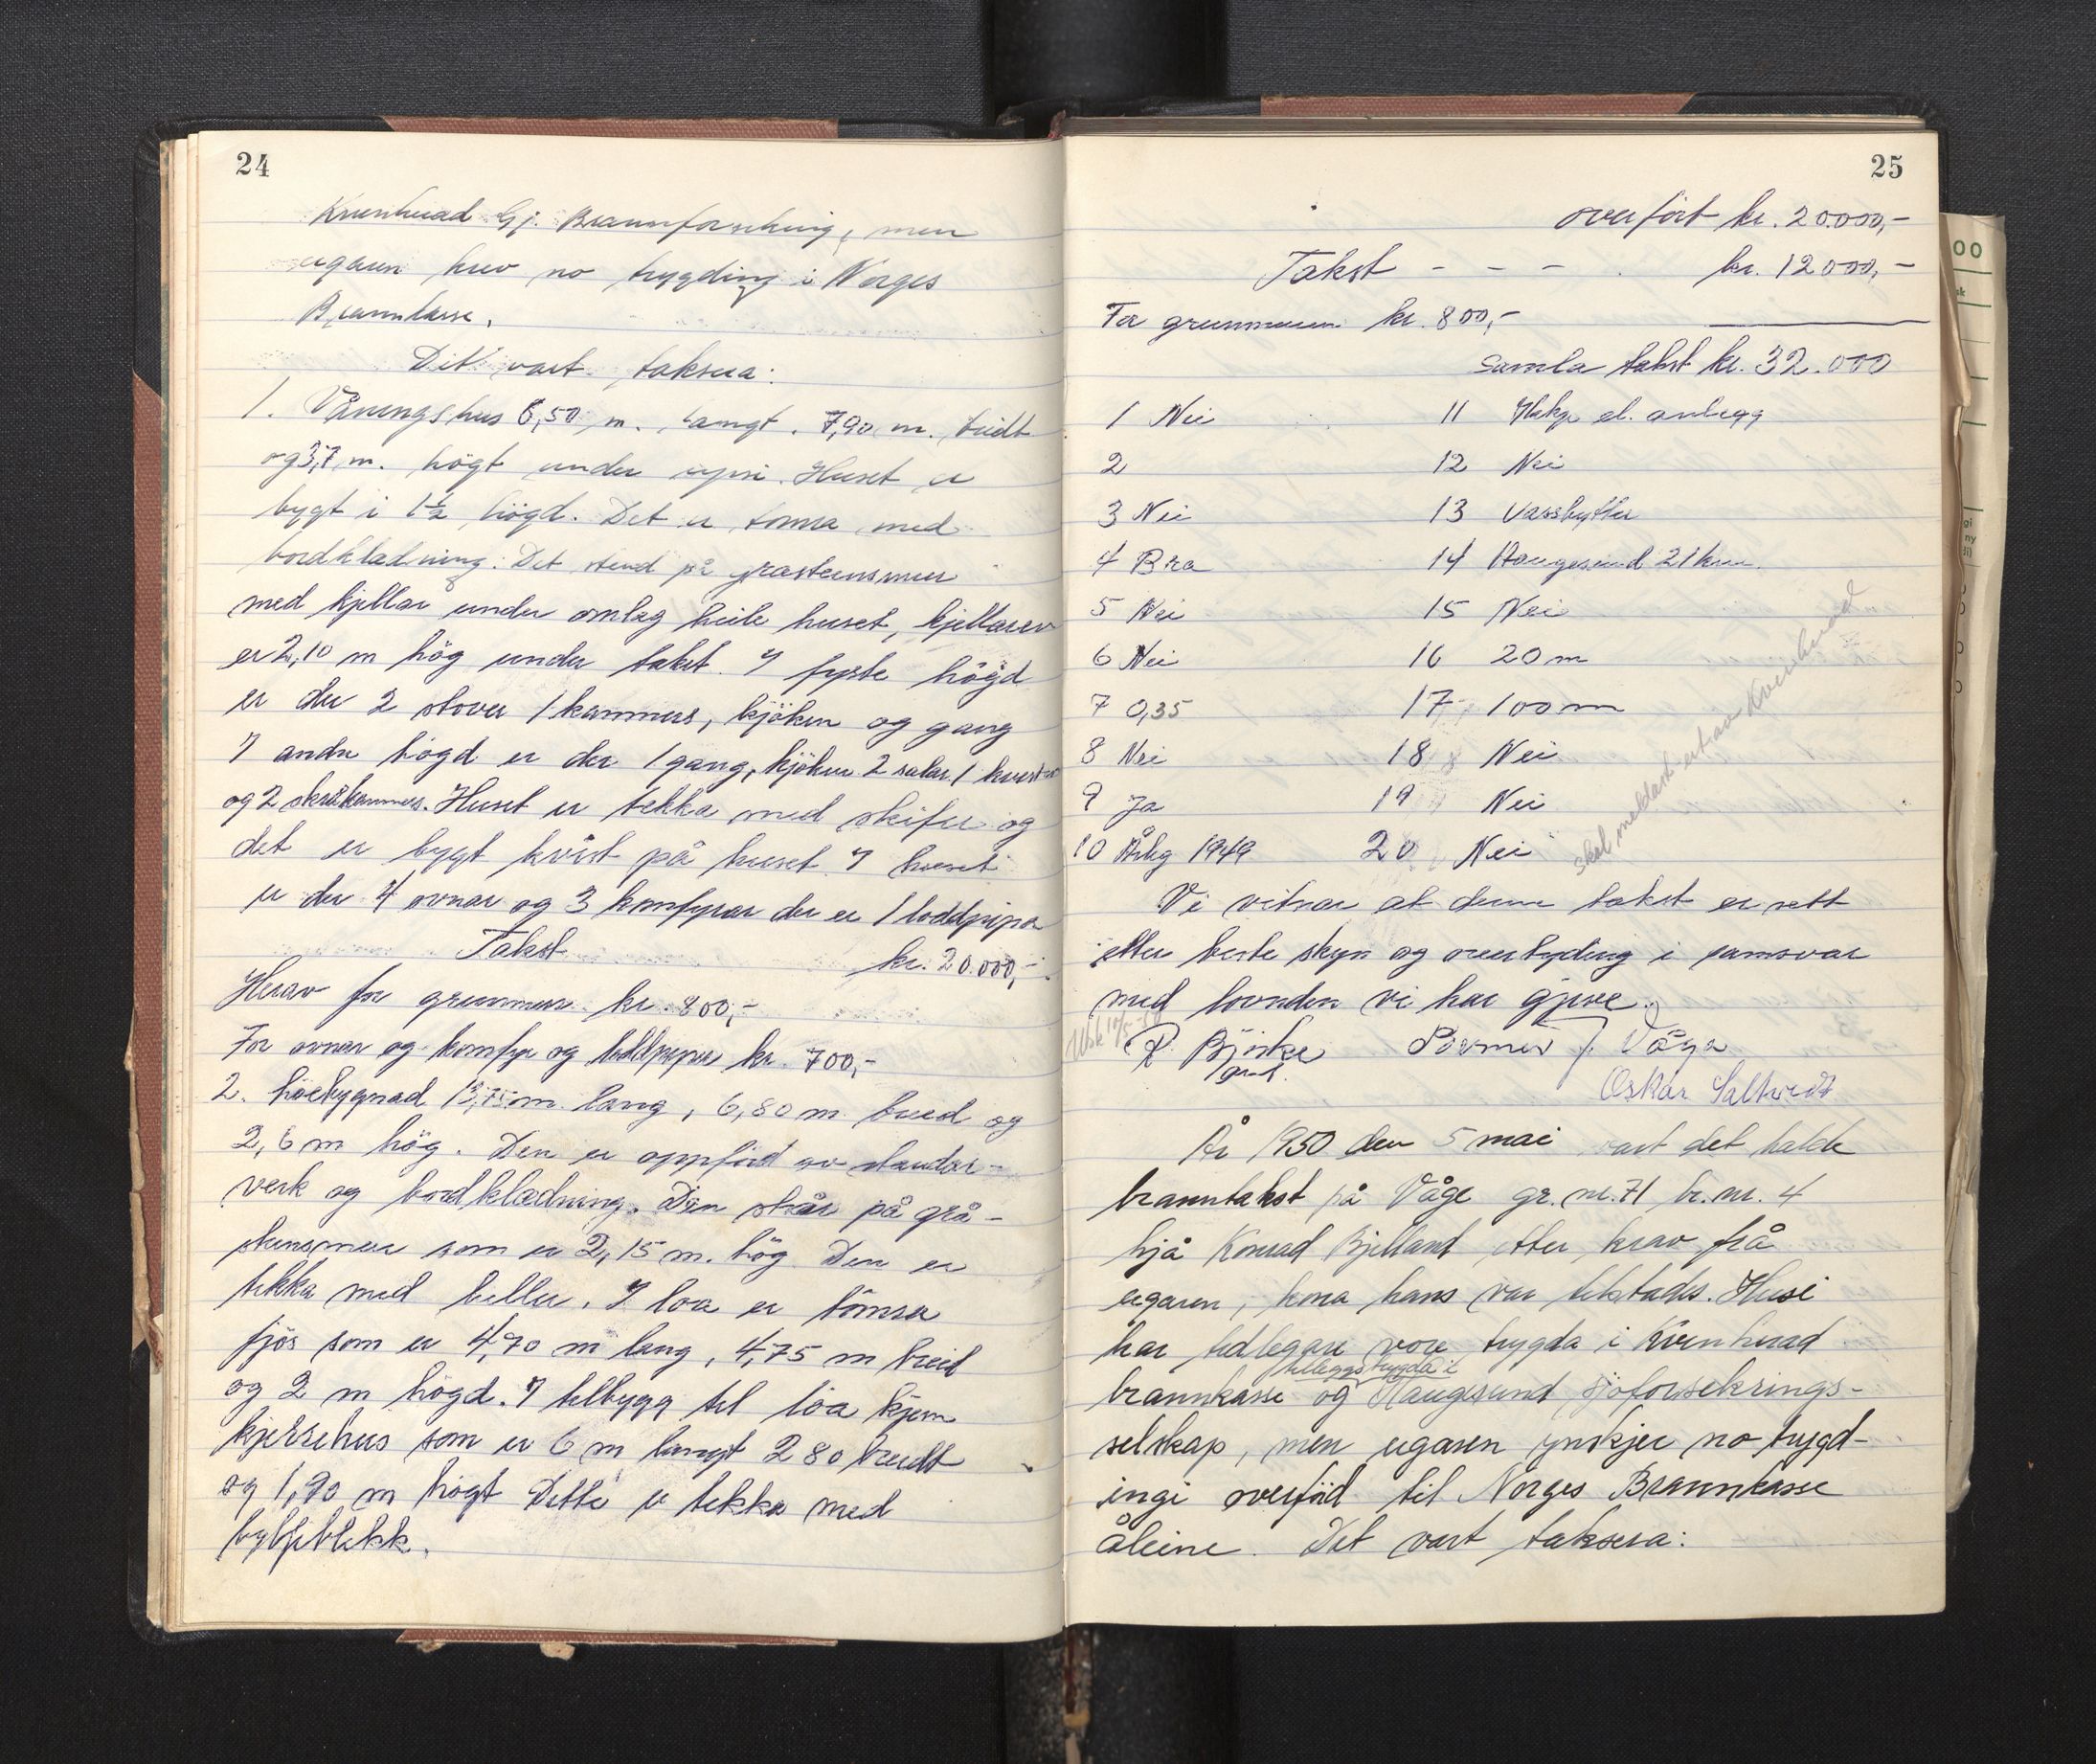 24
Kvenherad Gj. Brannforsikring, men
eigaren krev no trygding i Norges
Brannkasse.
Det vart taksera:
1. Våningshus 8,50 m. langt. 7,90 m. breidt
og 3,7 m. högt under upsi. Huset er
bygt i 1½ högd. Det er tömra med
bordkledning. Det stend på gråsteinsmur
med kjellar under omlag heile huset, kjellaren
er 2,10 m hög under taket. I fyrste högd
er der 2 stover 1 kammers, kjöken og gang
I andre högd er der 1 gang, kjöken 2 salar 1 kvist
og 2 skråkammers. Huset er tekka med skifer og
det er bygt kvist på huset. I huset
er der 4 ovnar og 3 komfyrar der er 1 loddpipa
Takst kr. 20.000,-
Herav for grunnmur kr. 800,-
For ovnar og komfyr og loddpipa kr. 700,-
2. höebygnad 13,75 m. lang, 6,80 m. breid og
2,6 m hög. Den er oppförd av stendar-
verk og bordkledning. Den står på grå-
steinsmur som er 2,15 m. hög. Den er
tekka med heller. I löa er tömra
fjös som er 4,70 m lang, 4,75 m breid
og 2 m högd. I tilbygg til löa kjem
kjerrehus som er 6 m langt 2 80 breidt
og 1,90 m högt Dette er tekka med
bylgjeblekk.
25
overfört kr. 20.000,-
Takst - - - kr. 12000,-
For grunnmuren kr. 800,-
Samla takst kr. 32.000
1 Nei 11 Ikkje el. anlegg
2 12 Nei
3 Nei 13 Vassbytter
4 Bra 14 Haugesund 21 km.
5 Nei 15 Nei
6 Nei 16 20 m
7 0,35 17 100 m
8 Nei 18 Nei
9 Ja 19 Nei
10 Årleg 1949 20 Nei
skal meldast ut av Kvinherad
Vi vitnar at denne takst er rett
etter beste skyn og overtyding i samsvar
med lovnden vi har gjeve.
Utsk 10/5-50
R. Björke Sövmer J. Våga
Oskar Saltvedt
År 1950 den 5 mai vart det halde
branntakst på Våge gr. nr. 71 br. nr. 4
hjå Konrad Bjelland etter krav frå
eigaren, kona hans var tilstades. Husi
har tidlegare vore trygda i Kvinherad
brannkasse og tilleggstrygda i Haugesund sjöforsekrings-
selskap, men eigaren ynskjer no trygd-
ingi overförd til Norges Brannkasse
åleine. Det vart taksera: